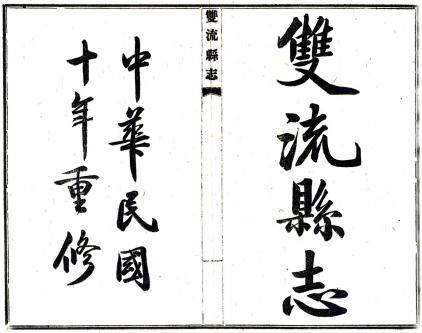 雙流縣志
雙流縣志
中華民國
十年重修